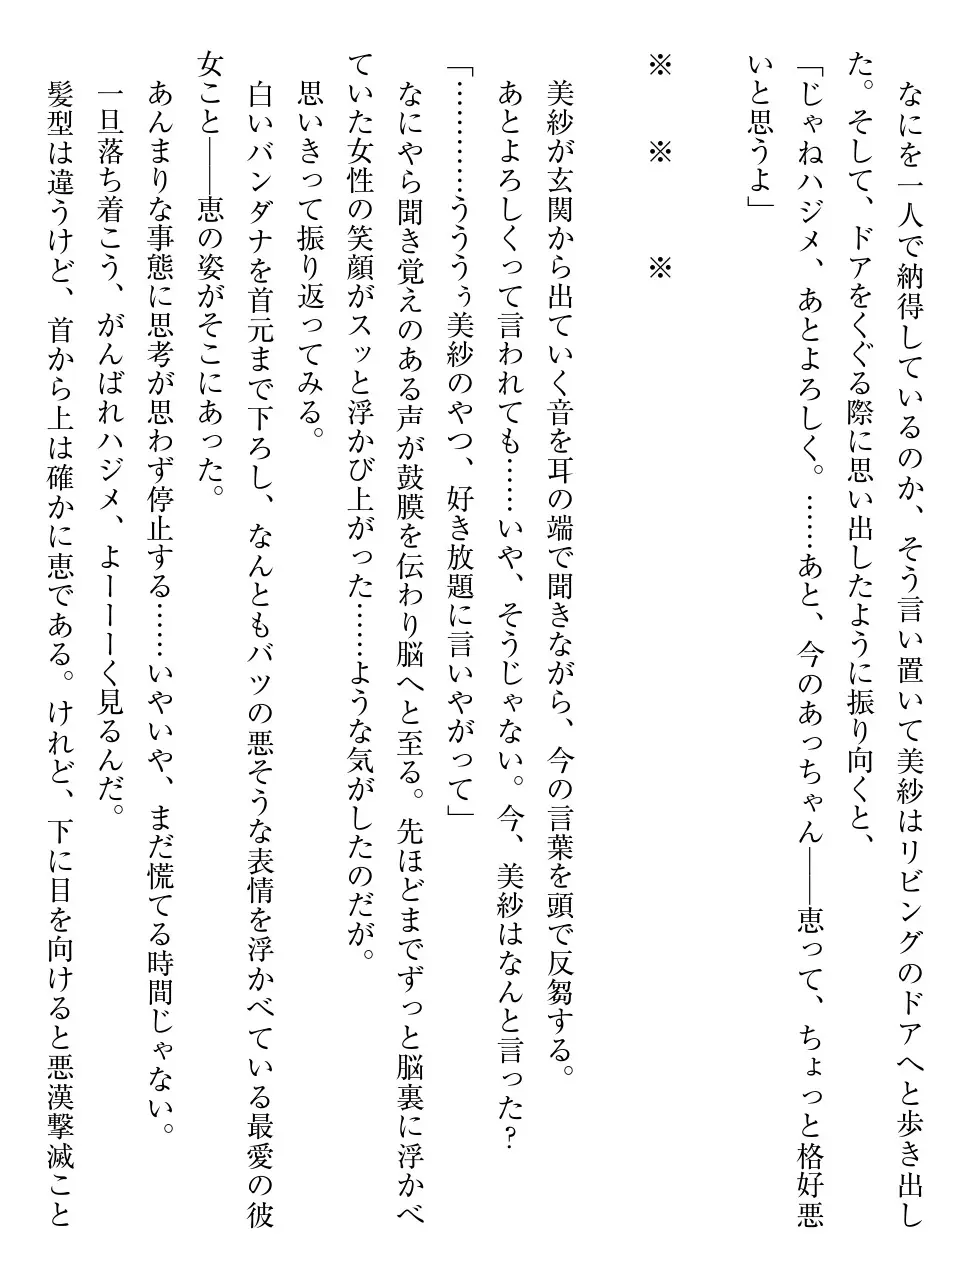 なにを一人で納得しているのか、そう言い置いて美紗はリビングのドアへと歩き出し
た。そして、ドアをくぐる際に思い出したように振り向くと、
「じゃねハジメ、あとよろしく。……あと、今のあっちゃん――恵って、ちょっと格好悪
いと思うよ」
※　※　※
美紗が玄関から出ていく音を耳の端で聞きながら、今の言葉を頭で反芻する。
あとよろしくって言われても……いや、そうじゃない。今、美紗はなんと言った？
「…………うううぅ美紗のやつ、好き放題に言いやがって」
なにやら聞き覚えのある声が鼓膜を伝わり脳へと至る。先ほどまでずっと脳裏に浮かべ
ていた女性の笑顔がスッと浮かび上がった……ような気がしたのだが。
思いきって振り返ってみる。
白いバンダナを首元まで下ろし、なんともバツの悪そうな表情を浮かべている最愛の彼
女こと――恵の姿がそこにあった。
あんまりな事態に思考が思わず停止する……いやいや、まだ慌てる時間じゃない。
一旦落ち着こう、がんばれハジメ、よーーーく見るんだ。
髪型は違うけど、首から上は確かに恵である。けれど、下に目を向けると悪漢撃滅こと